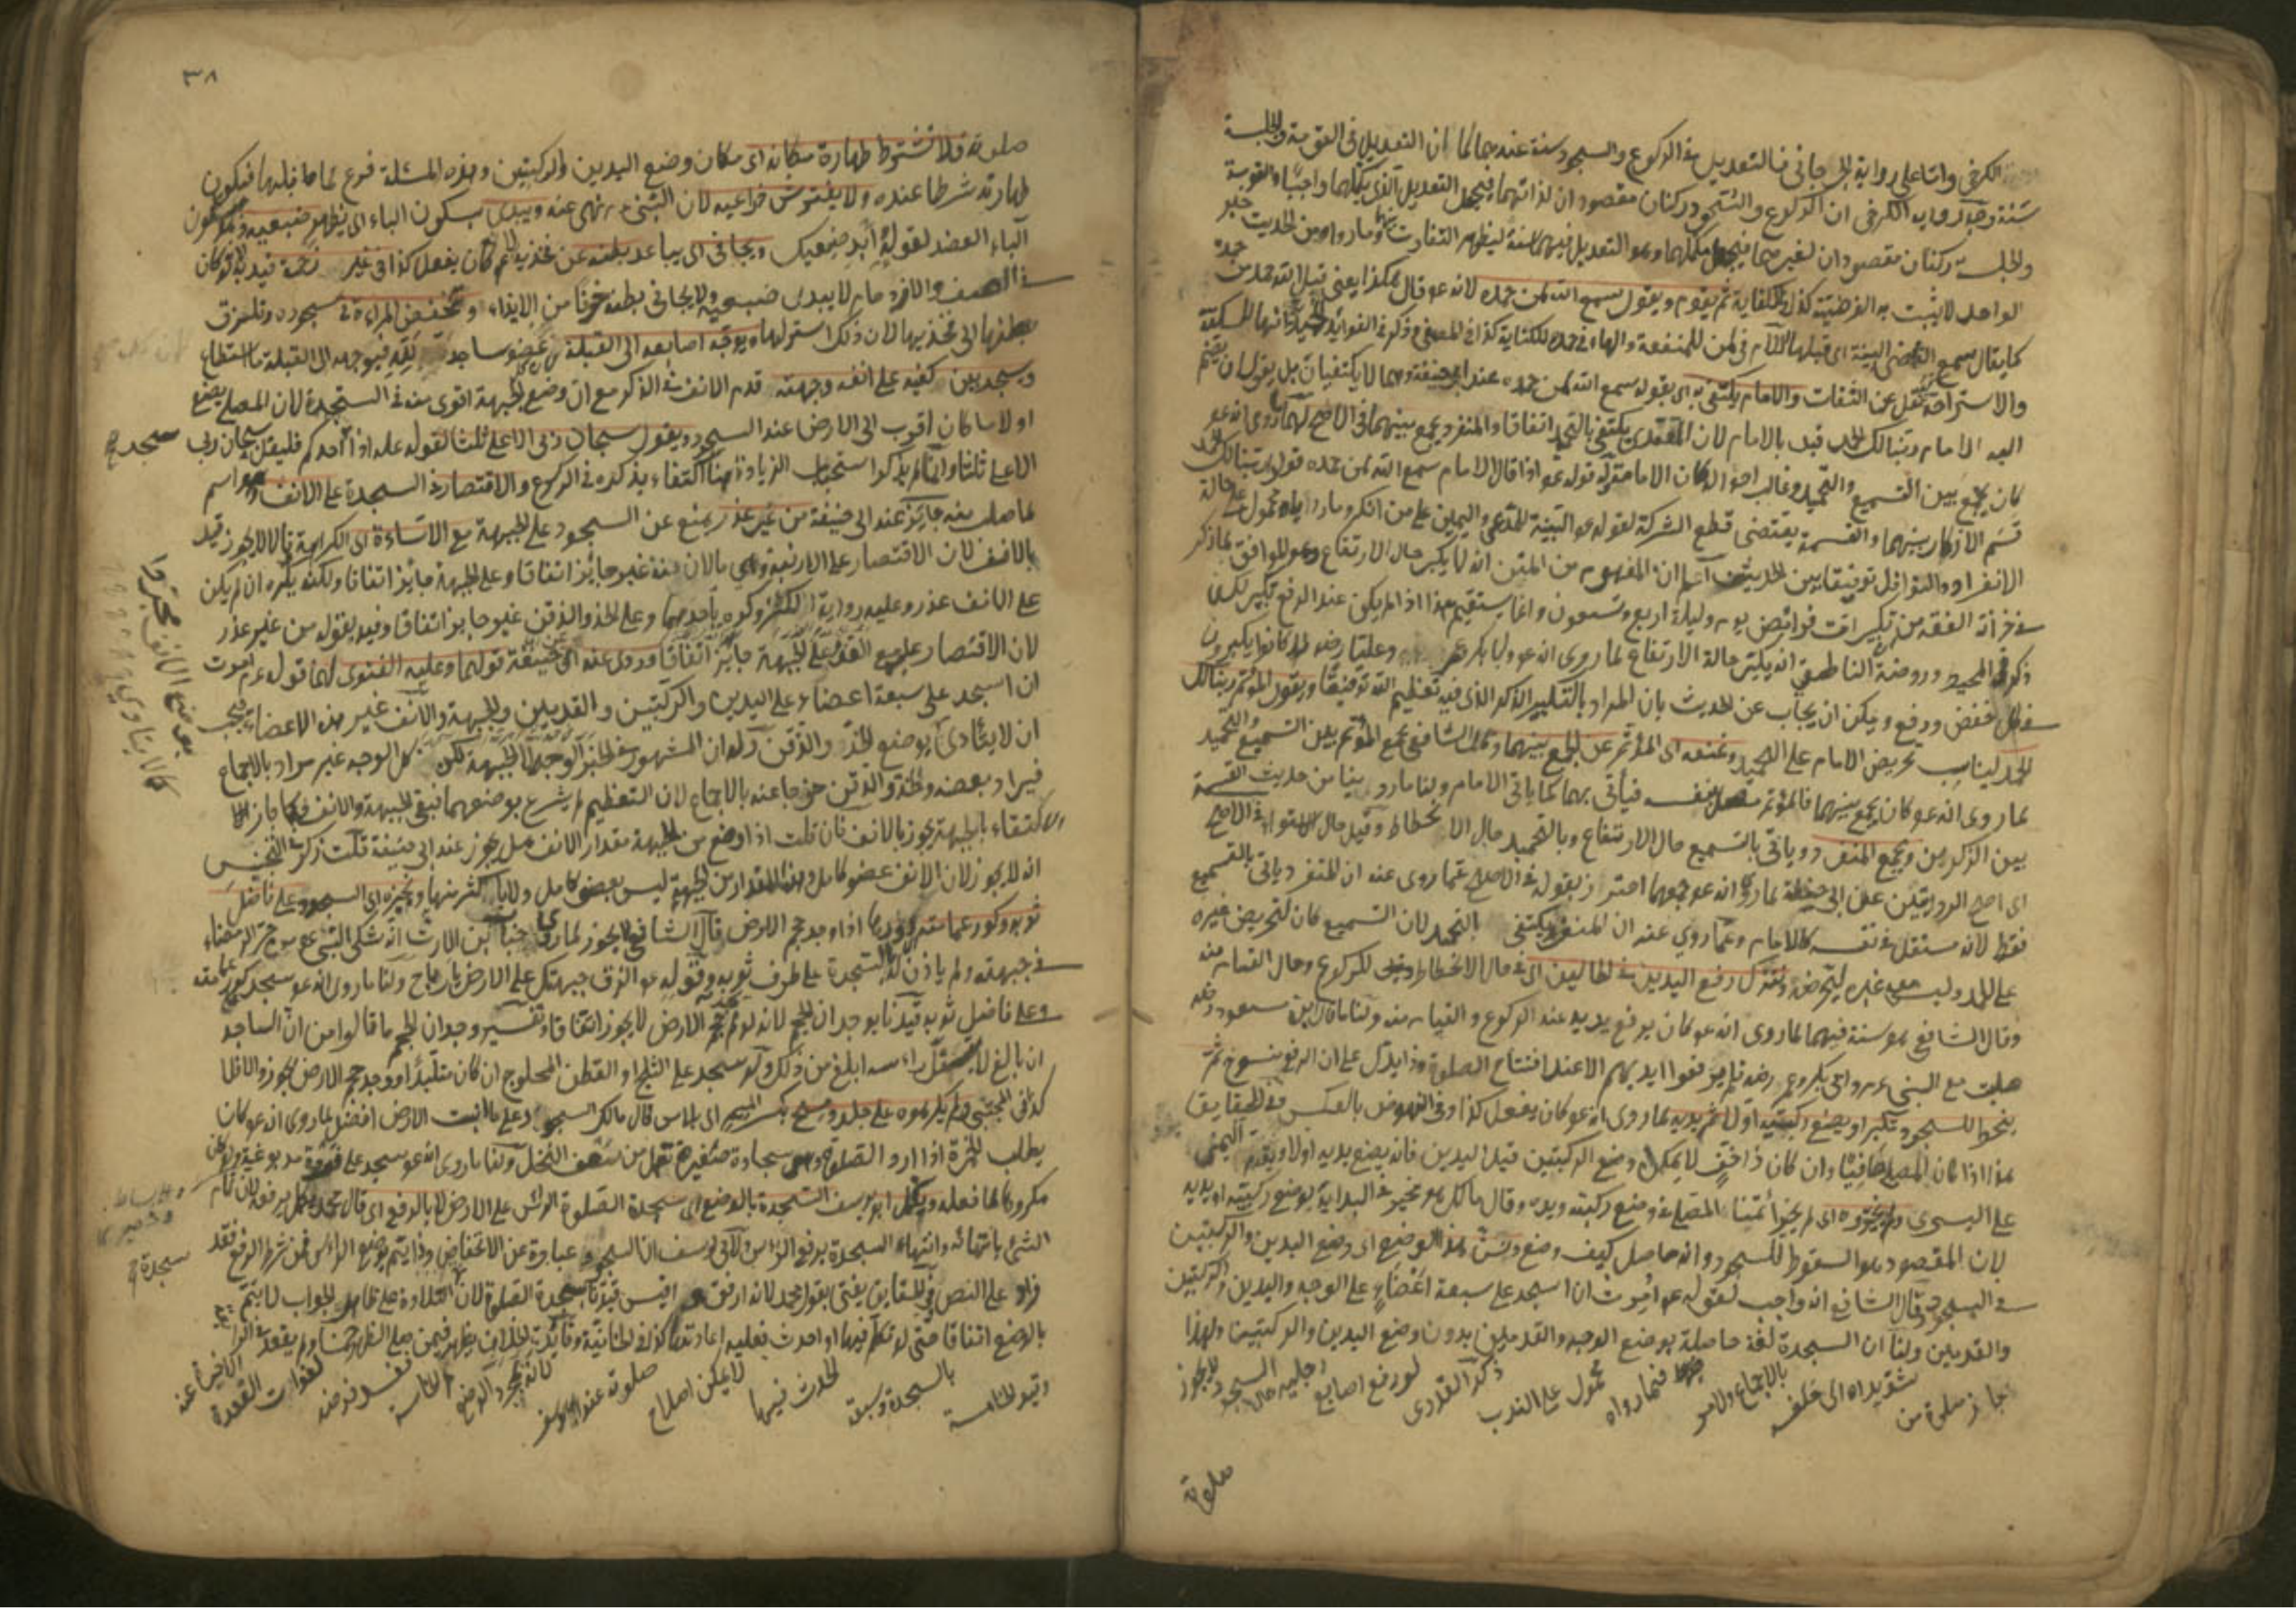 الكرخي واما على رواية الجرجاني فالتعديل في الركوع والسجود سنة عندهما كما ان التعديل في القومة والجلسة
سنة وجه رواية الكرخي ان الركوع والسجود ركنان مقصودان لذاتهما فيجعل التعديل الذي يكملهما واجبا والقومة
والجلسة ركنان مقصودان لغيرهما فيجعل مكملهما وهو التعديل فيهما سنة ليظهر التفاوت بينهما وما رواه من الحديث خبر
الواحد لا يثبت به الفرضية كذا في الكفاية ثم يقوم ويقول سمع الله لمن حمده لانه عم قال هكذا يعني قبل الله حمد من حمده
كما يقال سمع القاضي البينة اي قبلها اللام في لمن للمنفعة والهاء في حمده للكناية كذا في المصفى وذكر في الفوائد الحميدية انها للسكتة
والاستراحة نقل عن الثقات والامام يكتفي به اي بقوله سمع الله لمن حمده عند ابي حنيفة وهما لا يكتفيان بل يقولان يضم
اليه الامام ربنا لك الحمد قيد بالامام لان المقتدي يكتفي بالتحميد اتفاقا والمنفرد يجمع بينهما في الاصح لهما ما روي انه عم
كان يجمع بين التسميع والتحميد وغالب احواله كان الامامة وله قوله عم اذا قال الامام سمع الله لمن حمده قولوا ربنا لك الحمد
قسم الاذكار بينهما والقسمة يقتضي قطع الشركة كقوله عم البينة للمدعي واليمين على من انكر وما رواه محمول على حالة
الانفراد والنوافل توفيقا بين الحديثين اعلم ان المفهوم من المتن انه لا يكبر حال الارتفاع وهو الموافق لما ذكر
في خزانة الفقه من تكبيرات فرائض يوم وليلة اربع وتسعون وانما يستقيم هذا اذا لم يكن عند الرفع تكبير لكن
ذكر في المحيط وروضة الناطفي انه يكبر حالة الارتفاع لما روي انه عم وابا بكر وعمر وعليا رضهم كانوا يكبرون
في كل خفض ورفع ويمكن ان يجاب عن الحديث بان المراد بالتكبير الذكر الذي فيه تعظيم الله توفيقا ويقول المؤتم ربنا لك
الحمد ليناسب تحريض الامام على التحميد ونمنعه اي المؤتم عن الجمع بينهما وقال الشافعي يجمع المؤتم بين التسميع والتحميد
لما روي انه عم كان يجمع بينهما فالمؤتم نفسه فيأتي بهما كما ياتي الامام ولنا ما روينا من حديث القسمة
بين الذكرين ويجمع المنفرد وياتي بالتسميع حال الارتفاع وبالتحميد حال الانحطاط وقيل حال الاستواء في الاصح
اي اصح الروايتين عن ابي حنيفة لما روي انه عم جمعهما احترز بقوله في الاصح عما روي عنه ان المنفرد ياتي بالتسميع
فقط لانه مستقل في نفسه كالامام وعما روي عنه ان المنفرد يكتفي بالتحميد لان التسميع كان لتحريض غيره
على الحمد وليس معه غيره ليحرضه ونترك رفع اليدين في الحالين اي في حال الانحطاط للركوع وحال القيام منه
وقال الشافعي هو سنة فيهما لما روي انه عم كان يرفع يديه عند الركوع والقيام منه ولنا ما قال ابن مسعود رضه
صليت مع النبي عم وابي بكر وعمر رضهم فلم يرفعوا ايديهم الا عند افتتاح الصلوة وذا يدل على ان الرفع منسوخ ثم
ينحو للسجود مكبرا ويضع ركبتيه اولا ثم يديه لما روي انه عم كان يفعل كذا وفي النهوض بالعكس في الحقايق
هذا اذا كان المصلي حافيا وان كان ذا خف لا يمكنه وضع الركبتين قبل اليدين فانه يضع يديه اولا ويقدم اليمنى
على اليسرى ولم يخيروه اي لم يخير ائمتنا المصلي في وضع ركبتيه ويديه وقال مالك هو مخير في البداية بوضع ركبتيه او يديه
لان المقصود هو السقوط للسجود وانه حاصل كيف وضع ونسن هذا الوضع اي وضع اليدين والركبتين
في السجود وقال الشافعي انه واجب لقوله عم اموت ان اسجد على سبعة اعضاء على الوجه واليدين والركبتين
والقدمين ولنا ان السجدة لغة حاصلة بوضع الوجه والقدمين بدون وضع اليدين والركبتين ولهذا
جاز صلوة من شد يداه الى خلفه بالاجماع والامر فيما رواه محمول على الندب ذكر القدوري لو رفع اصابع رجليه حال السجود لا يجوز
صلوته
٣٨
صلوته فلا تشترط طهارة مكانه اي مكان وضع اليدين والركبتين وهذه المسئلة فرع لما قبلها فيكون
طهارته شرطا عنده ولا يفترش ذراعيه لان النبي عم نهى عنه ويبدي بسكون الباء اي يظهر ضبعيه وهو بسكون
الباء العضد لقوله عم أبد ضبعيك ويجافي اي يباعد بطنه عن فخذيه لانه عم كان يفعل كذا في غير زحمة قيد به لانه لو كان
في الصف والازدحام لا يبدي ضبعيه ولا يجافي بطنه خوفا من الايذاء وتنخفض المراة في سجوده وتلزق
بطنها الى فخذيها لان ذلك استر لها ويوجه اصابعه الى القبلة عضو ساجد فيوجهه الى القبلة ما استطاع
ويسجد بين كفيه على انفه وجبهته قدم الانف في الذكر مع ان وضع الجبهة اقوى منه في السجدة لان المصلي يضع
اولا ما كان اقرب الى الارض عند السجود ويقول سبحان ربي الاعلى ثلثا لقوله عم اذا سجد احدكم فليقل سبحان ربي
الاعلى ثلثا وانما لم يذكروا استحباب الزيادة هنا اكتفاء بذكره في الركوع والاقتصار في السجدة على الانف وهو اسم
لما صلب منه جائز عند ابي حنيفة من غير عذر يمنع عن السجود على الجبهة مع الاساءة اي الكراهة وقالا لا يجوز قيد
بالانف لان الاقتصار على الارنبة وهي ما لان منه غير جائز اتفاقا وعلى الجبهة جائز اتفاقا ولكنه يكره ان لم يكن
على الانف عذر وعليه رواية الكنز وكره باحدهما وعلى الخد والذقن غير جايز اتفاقا وقيد بقوله من غير عذر
لان الاقتصار عليه مع العذر على الجبهة جائز اتفاقا وروي عنه اي عن ابي حنيفة قولهما وعليه الفتوى لهما قوله عم امرت
ان اسجد على سبعة اعضاء على اليدين والركبتين والقدمين والجبهة والانف غير هذه الاعضاء فيجب
ان لا يتادى بوضع الخد والذقن وله ان المشهور في الخبر الوجه لا الجبهة لكن كل الوجه غير مراد بالاجماع
فيراد بعضه والخد والذقن خرجا عنه بالاجماع لان التعظيم لم يشرع بوضعهما فبقي الجبهة والانف فكما جاز
الاكتفاء بالجبهة يجوز بالانف فان قلت اذا وضع من الجبهة مقدار الانف هل يجوز عند ابي حنيفة قلت ذكر في التجنيس
انه لا يجوز لان الانف عضو كامل وهذا المقدار من الجبهة ليس بعضو كامل ولا باكثر منها ونجيزه اي السجود على فاضل
ثوبه وكور عمامته اذا وجد حجم الارض وقال الشافعي لا يجوز لما روي خباب بن الارت انه شكى النبي عم من حر الرمضاء
في جبهته ولم ياذن له السجدة على طرف ثوبه وقوله عم الزق جبهتك على الارض ولنا ما روي انه عم سجد على كور عمامته
وعلى فاضل ثوبه قيدنا بوجدان الحجم لانه لو لم يجد حجم الارض لا يجوز اتفاقا وتفسير وجدان الحجم ما قالوا من ان الساجد
ان بالغ لا يتسفل راسه ابلغ من ذلك ولو سجد على الثلج او القطن المحلوج ان كان متلبدا ووجد حجم الارض يجوز والا فلا
كذا في المجتبى ولم يكرهوه على جلد ومسح بكسر الميم اي پلاس قال مالك السجود على ما انبت الارض افضل لما روي انه عم كان
يطلب الخمرة اذا اراد الصلوة وهي سجادة صغيرة تعمل من سعف النخل ولنا ما روي انه عم سجد على فروة مدبوغة ولو كان
مكروها لما فعله ويكمل ابو يوسف السجدة بالوضع اي سجدة الصلوة الراس على الارض لا بالرفع اي قال محمد يكمل برفعه لان تمام
الشئ بانتهائه وانتهاء السجدة برفع الراس ولابي يوسف ان السجود عبارة عن الانخفاض وذا يتم بوضع الراس فمن شرط الرفع فقد
زاد على النص في الحقايق يفتي بقول محمد لانه ارفق اقيس قيدنا بسجدة الصلوة لان التلاوة على ظاهر الجواب لا يتم
بالوضع اتفاقا حتى لو تكلم فيها او احدث فعليه اعادتها كذا في الخانية وفائدة الخلاف يظهر فيمن صلى الظهر خمسا ولم يقعد في الرابعة
وقيد الخامسة بالسجدة وسبقه الحدث فيها لا يمكن اصلاح صلوته عند ابي يوسف لانه بمجرد الوضع الخامسة ففسد فرضه لفوات القعدة الاخيرة عنه
سجد صح
سجدة صح